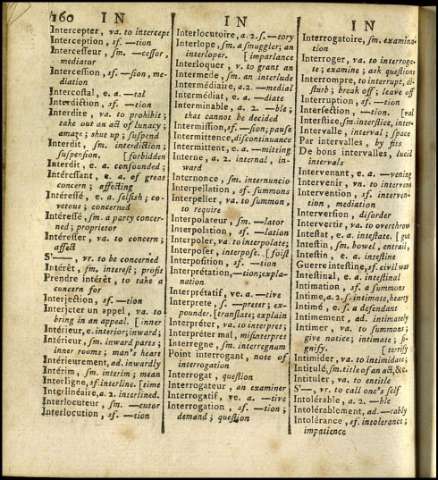 160 I N
I N
I N
Intercepter, va. to intercept
Interception, sf. —tion
Intercesseur, sm. —cessor,
mediator
Intercession, sf. —sion, me-
diation
Intercostal, e. a. —tal
Interdiction, sf. —tion
Interdire, va. to prohibit;
take out an act of lunacy;
amaze; shut up; suspend
Interdit, sm. interdiction;
suspension, [forbidden
Interdit, e. a. confounded;
Intéressant, e. a. of great
concern; affecting
Intéressé, e. a. selfish; co-
vetous; concerned
Intéressé, sm. a party concer-
ned; proprietor
Intéresser, va. to concern;
affect
S'—, vr. to be concerned
Intérêt, sm. interest; profit
Prendre intérêt, to take a
concern for
Interjection, sf. —tion
Interjeter un appel, va. to
bring in an appeal. [inner
Intérieur, e. interior; inward;
Intérieur, sm. inward parts;
inner rooms; man's heart
Intérieurement, ad. inwardly
Intérim, sm. interim; mean
Interligne, sf. interline. [time
Interlinéaire, a. 2. interlined.
Interlocuteur, sm. —cutor
Interlocution, sf. —tion
Interlocutoire, a. 2. s. —tory
Interlope, sm. a smuggler; an
interloper. [imparlance
Interloquer, v. to grant an
Intermède, sm. an interlude
Intermédiaire, a. 2. —medial
Intermédiat, e. a. —diate
Interminable, a. 2. —ble;
that cannot be decided
Intermission, sf. —sion; pause
Intermittence, discontinuance
Intermittent, e. a. —mitting
Interne, a. 2. internal, in-
ward
Internonce, sm. internuncio
Interpellation, sf. summons
Interpeller, va. to summon
to require
Interpolateur, sm. —lator
Interpolation, sf. —lation
Interpoler, va. to interpolate;
Interposer, interpose. [foist
Interposition, sf. —tion
Interprétation, —tion; expla-
nation
Interprétatif, ve. a. —tive
Interprete, s. —preter; ex-
pounder. [translate; explain
Interpréter, va. to interpret;
Interpréter mal, misinterpret
Interregne, sm. interregnum
Point interrogant, note of
interrogation
Interrogat, question
Interrogateur, an examiner
Interrogatif, ve. a. —tive
Interrogation, sf. —tion;
demand; question
Interrogatoire, sm. examina-
tion
Interroger, va. to interroga-
te; examine; ask questions
Interrompre, to interrupt, di-
sturb; break off; leave off
Interruption, sf. —tion
Intersection, —tion. [val
Interstice, sm. interstice, inter-
Intervalle, interval; space
Par intervalles, by fits
De bons intervalles, lucid
intervals
Intervenant, e. a. —vening
Intervenir, vn. to intervene
Intervention, sf. interven-
tion, mediation
Interversion, disorder
Intervertir, va. to overthrow
Intestat, e. a. intestate. [gut
Intestin, sm. bowel, entrail,
Intestin, e. a. intestine
Guerre intestine, sf. civil war
Intestinal, e. a. intestinal
Intimation, sf. a summons
Intime, a. 2. s. intimate, hearty
Intimé, e. s. a defendant
Intimement, ad. intimately
Intimer, va. to summons;
give notice; intimate; si-
gnify. [terrify
Intimider, va. to intimidate;
Intitulé, sm. title of an act, &c.
Intituler, va. to entitle
S'—, vr. to call one's self
Intolérable, a. 2. —ble
Intolérablement, ad. —rably
Intolérance, sf. intolerance;
impatience